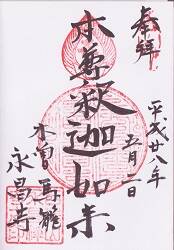 奉拝
平成廿八年
五月一日
本尊釋迦如来
木曽馬籠
永昌寺